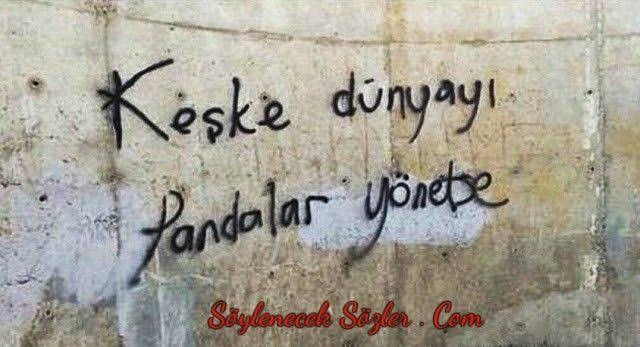 Keşke dünyayı
Pandalar yönetse
Söylenecek Sözler . Com